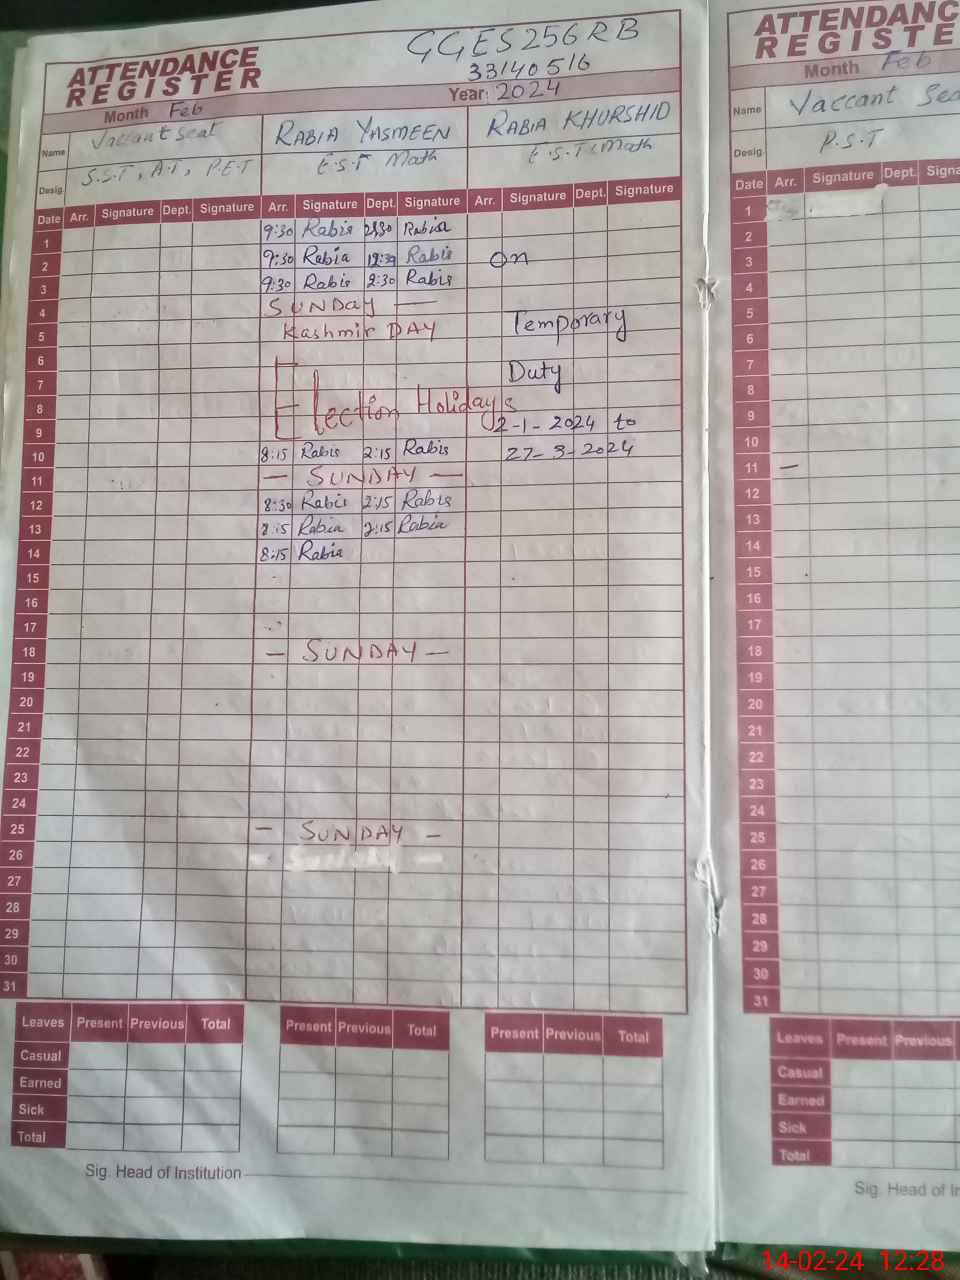 GGES 256 RB
33140516
ATTENDANCE
REGISTER
Month Feb
Year: 2024
Name Vaccant Seat RABIA YASMEEN RABIA KHURSHID
Desig. S.S.T, A.T, P.E.T E.S.T Math E.S.T Math
Date Arr. Signature Dept. Signature Arr. Signature Dept. Signature Arr. Signature Dept. Signature
1 9:30 Rabia Rabia
2 9:30 Rabia Rabia On
3 9:30 Rabia 2:30 Rabia
4 SUNDAY —
5 Kashmir DAY Temporary
6
7 Duty
8 Election Holidays
9 2-1-2024 to
10 8:15 Rabia 2:15 Rabia 27-3-2024
11 — SUNDAY —
12 8:30 Rabia 2:15 Rabia
13 8:15 Rabia 2:15 Rabia
14 8:15 Rabia
15
16
17
18 — SUNDAY —
19
20
21
22
23
24
25 — SUNDAY —
26
27
28
29
30
31
Leaves Present Previous Total Present Previous Total Present Previous Total
Casual
Earned
Sick
Total
Sig. Head of Institution
ATTENDANC
REGISTE
Month Feb
Name Vaccant Sea
Desig. P.S.T
Date Arr. Signature Dept. Signa
1
2
3
4
5
6
7
8
9
10
11 —
12
13
14
15
16
17
18
19
20
21
22
23
24
25
26
27
28
29
30
31
Leaves Present Previous
Casual
Earned
Sick
Total
Sig. Head of In
14-02-24 12:28